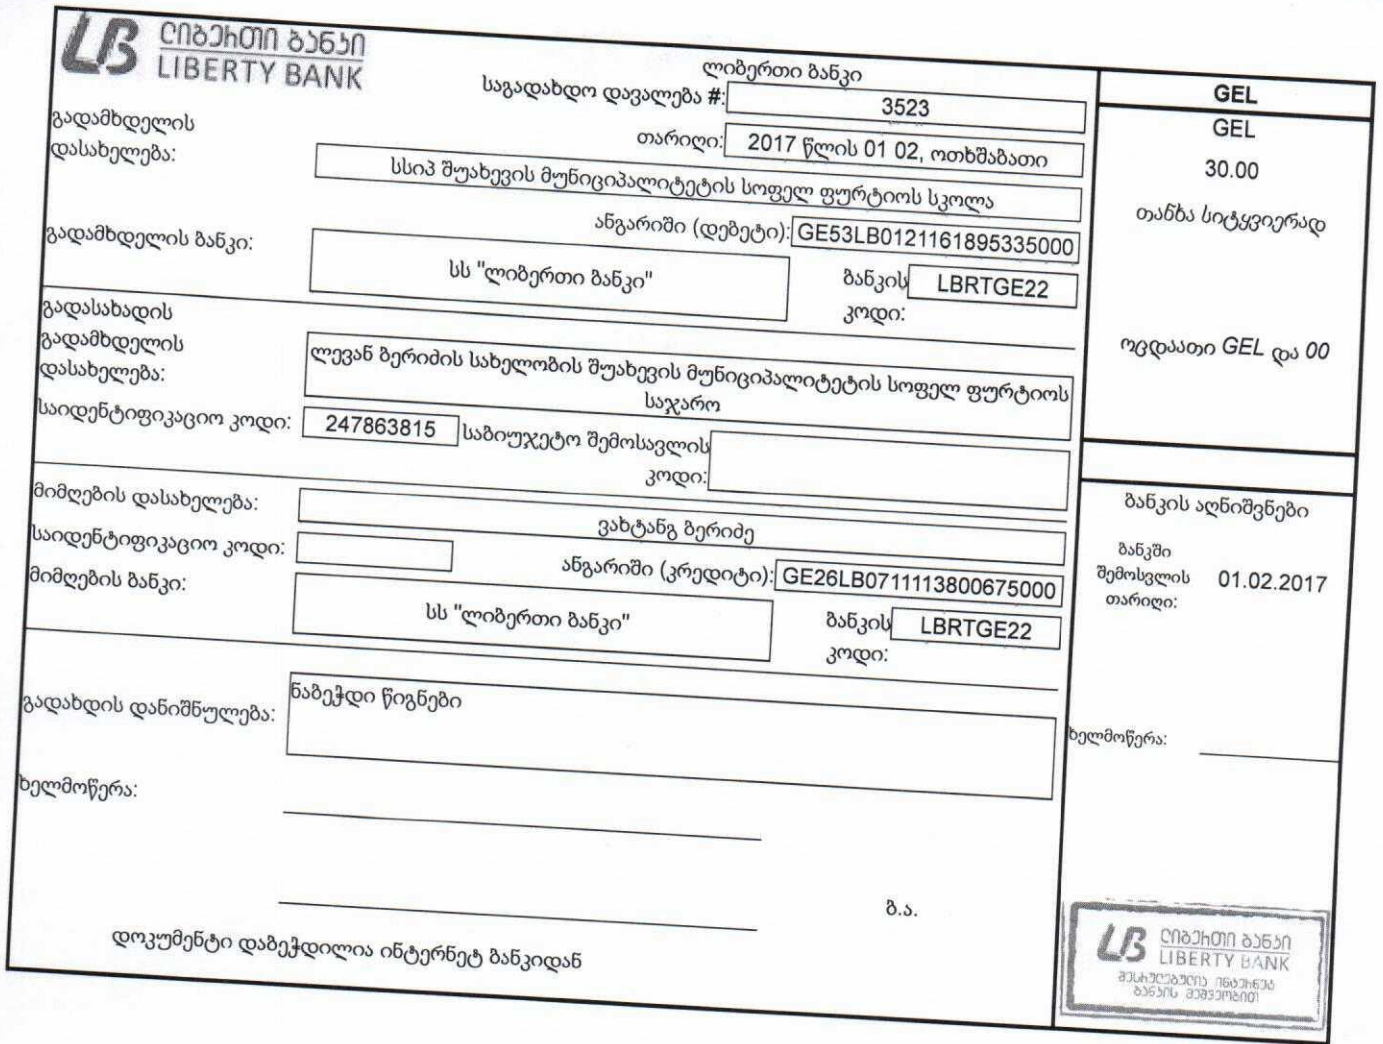 ლიბერთი ბანკი
LIBERTY BANK
ლიბერთი ბანკი
საგადახდო დავალება #: 3523
თარიღი: 2017 წლის 01 02, ოთხშაბათი
გადამხდელის
დასახელება:
სსიპ შუახევის მუნიციპალიტეტის სოფელ ფურტიოს სკოლა
ანგარიში (დებეტი): GE53LB0121161895335000
გადამხდელის ბანკი:
სს "ლიბერთი ბანკი"
ბანკის
კოდი:
LBRTGE22
გადასახადის
გადამხდელის
დასახელება:
ლევან ბერიძის სახელობის შუახევის მუნიციპალიტეტის სოფელ ფურტიოს
საჯარო
საიდენტიფიკაციო კოდი: 247863815
საბიუჯეტო შემოსავლის
კოდი:
მიმღების დასახელება: ვახტანგ ბერიძე
საიდენტიფიკაციო კოდი:
ანგარიში (კრედიტი): GE26LB0711113800675000
მიმღების ბანკი:
სს "ლიბერთი ბანკი"
ბანკის
კოდი:
LBRTGE22
გადახდის დანიშნულება: ნაბეჭდი წიგნები
ხელმოწერა:
ბ.ა.
დოკუმენტი დაბეჭდილია ინტერნეტ ბანკიდან
GEL
GEL
30.00
თანხა სიტყვიერად
ოცდაათი GEL და 00
ბანკის აღნიშვნები
ბანკში
შემოსვლის
თარიღი:
01.02.2017
ხელმოწერა:
ლიბერთი ბანკი
LIBERTY BANK
შესრულებულია ინტერნეტ
ბანკის მეშვეობით